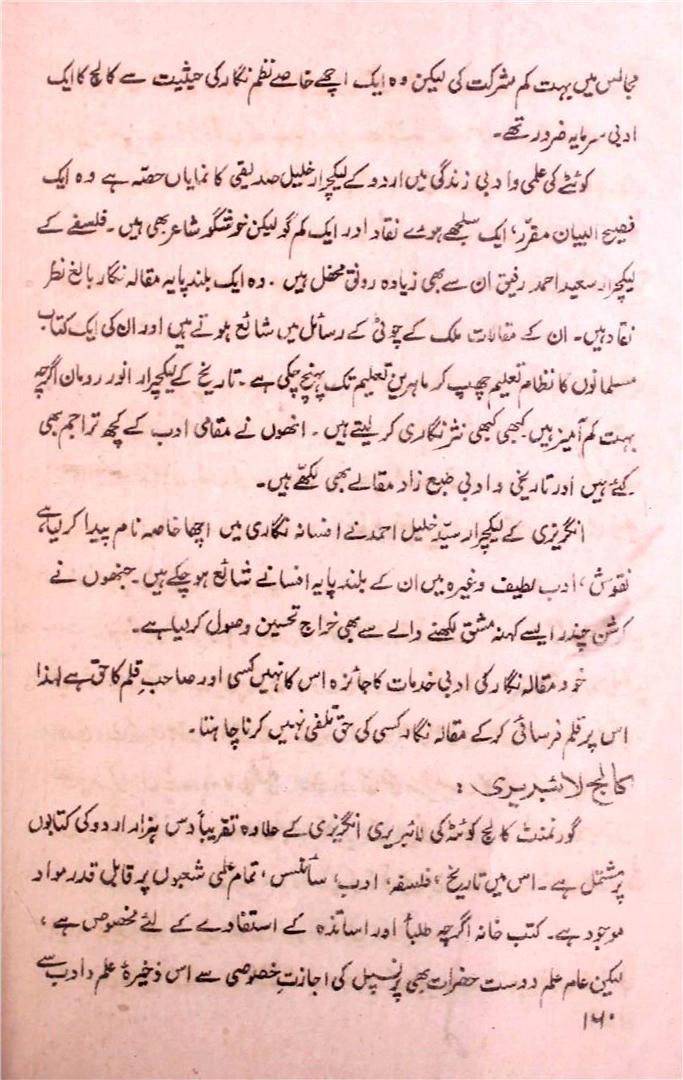 مجالس میں بہت کم شرکت کی لیکن وہ ایک اچھے خاصے نظم نگار کی حیثیت سے کالج کا ایک
ادبی سرمایہ ضرور تھے۔
کوئٹے کی علمی و ادبی زندگی میں اردو کے لیکچرار خلیل صدیقی کا نمایاں حصّہ ہے وہ ایک
فصیح البیان مقرّر، ایک سلجھے ہوئے نقاد اور ایک کم گو لیکن خوشگو شاعر بھی ہیں۔ فلسفے کے
لیکچرار سعید احمد رفیق ان سے بھی زیادہ رونق محفل ہیں ۔ وہ ایک بلند پایہ مقالہ نگار بالغ نظر
نقاد ہیں۔ ان کے مقالات ملک کے چوٹی کے رسائل میں شائع ہوتے ہیں اور ان کی ایک کتاب
مسلمانوں کا نظام تعلیم چھپ کر ماہرینِ تعلیم تک پہنچ چکی ہے ۔ تاریخ کے لیکچرار انور رومان اگرچہ
بہت کم آمیز ہیں کبھی کبھی نثر نگاری کر لیتے ہیں ۔ انھوں نے مقامی ادب کے کچھ تراجم بھی
کئے ہیں اور تاریخی و ادبی طبع زاد مقالے بھی لکھّے ہیں۔
انگریزی کے لیکچرار سیّد خلیل احمد نے افسانہ نگاری میں اچھا خاصہ نام پیدا کر لیا ہے
نقوش، ادب لطیف وغیرہ میں ان کے بلند پایہ افسانے شائع ہو چکے ہیں ۔ جنھوں نے
کرشن چندر ایسے کہنہ مشق لکھنے والے سے بھی خراج تحسین وصول کر لیا ہے۔
خود مقالہ نگار کی ادبی خدمات کا جائزہ اس کا نہیں کسی اور صاحبِ قلم کا حق ہے لہٰذا
اس پر قلم فرسائی کر کے مقالہ نگار کسی کی حق تلفی نہیں کرنا چاہتا۔
کالج لائبریری :
گورنمنٹ کالج کوئٹہ کی لائبریری انگریزی کے علاوہ تقریباً دس ہزار اردو کی کتابوں
پر مشتمل ہے۔ اس میں تاریخ، فلسفہ، ادب، سائنس، تمام علمی شعبوں پر قابل قدر مواد
موجود ہے۔ کتب خانہ اگرچہ طلبأ اور اساتذہ کے استفادے کے لئے مخصوص ہے ،
لیکن عام علم دوست حضرات بھی پرنسپل کی اجازتِ خصوصی سے اس ذخیرۂ علم و ادب سے
۱۶۰